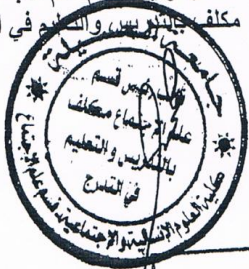 مكلف بالتدريس والتعليم في
جامعة
نائب رئيس قسم
علم الاجتماع مكلف
بالتدريس والتعليم
في التدرج
كلية العلوم الإنسانية والاجتماعية، قسم علم الاجتماع